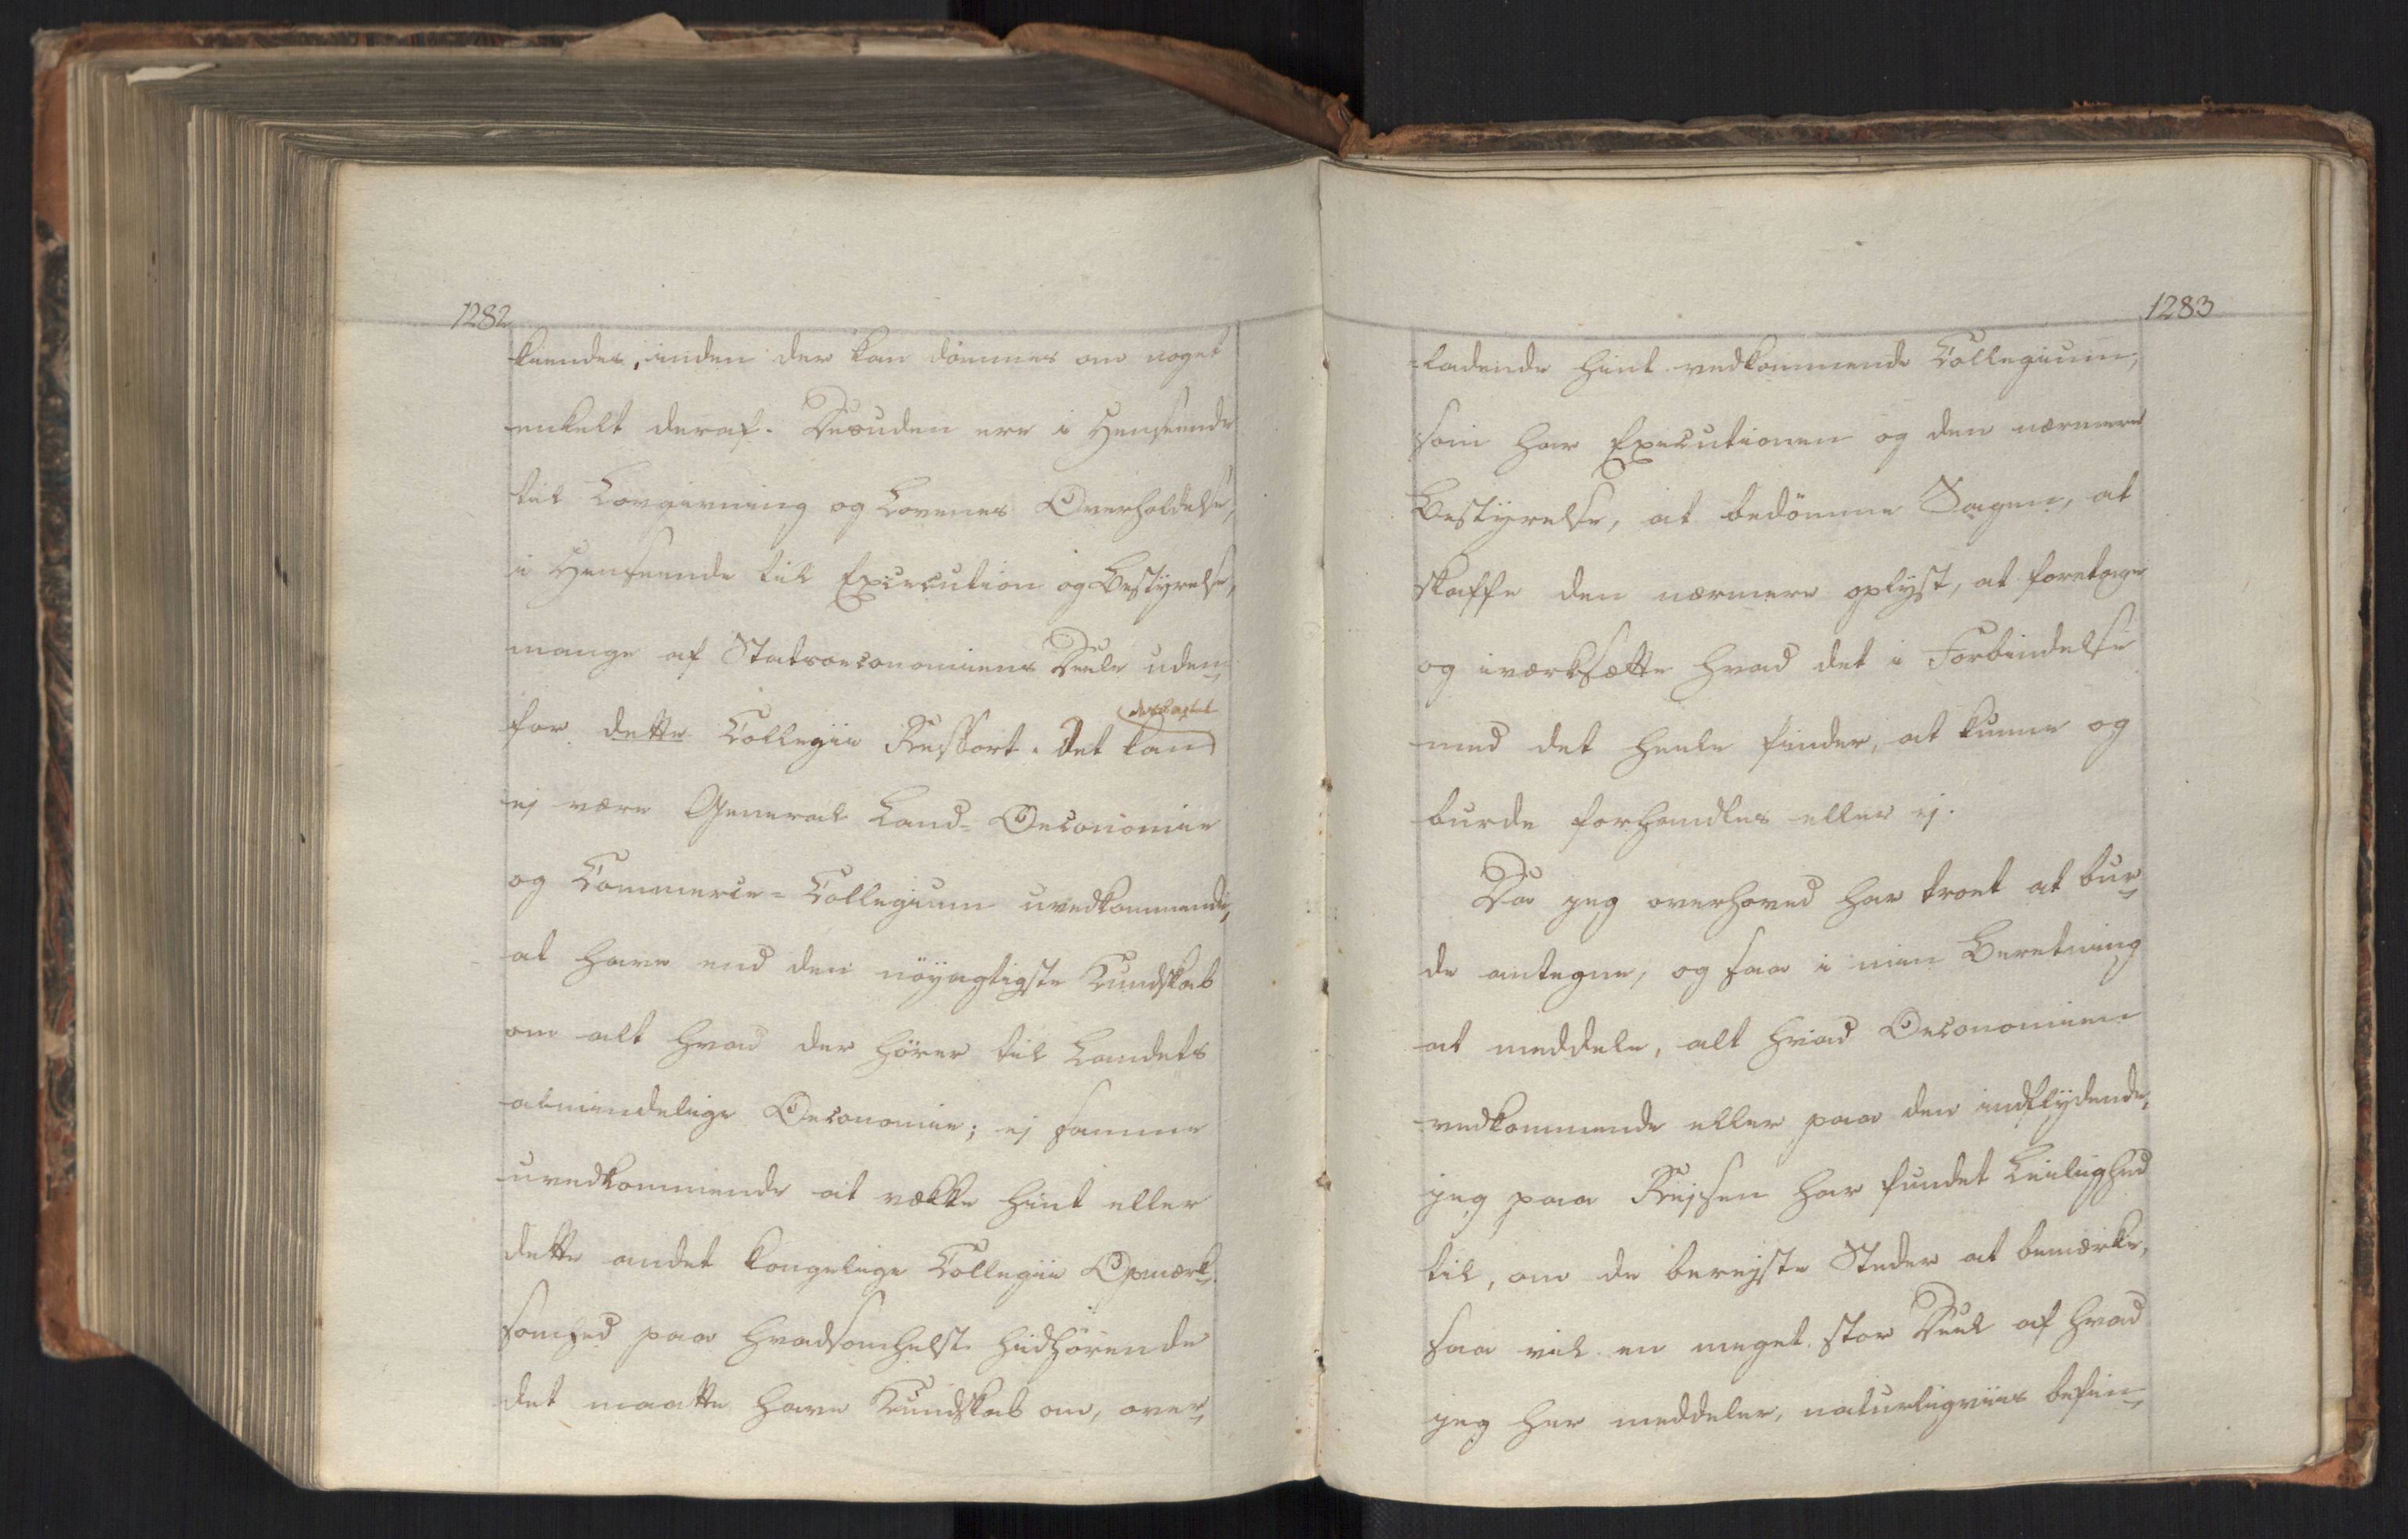 1282
kiendes, inden der kan dömmes om noget
enkelt deraf. Desuden ere i Henseende
til Lovgivning og Lovenes Overholdelse,
i Henseende til Execution og Bestyrelse,
mange af Statsoeconomiens Deele uden-
for dette Collegii Ressort. Det kan
ej være General Land-Oeconomie
og Commerce-Collegium uvedkommende,
at have end den nöyagtigste Kundskab
om alt hvad der hörer til Landets
almindelige Oeconomie; ej samme
uvedkommende at vække hint eller
dette andet kongelige Collegii Opmærk-
somhed paa hvadsomhelst hidhörende
det maatte have Kundskab om, over-
1283
-ladende hint vedkommende Collegium,
som har Executionen og den nærmere
Bestyrelse, at bedömme Sagen, at
skaffe den nærmere oplyst, at foretage
og iværksætte hvad det i Forbindelse
med det heele finder, at kunne og
burde forhandles eller ej.
Da jeg overhoved har troet at bur-
de antegne, og saa i min Beretning
at meddele, alt hvad Oeconomien
vedkommende eller paa den indflydende,
jeg paa Rejsen har fundet Leilighed
til, om de berejste Steder at bemærke,
saa vil en meget stor Deel af hvad
jeg her meddeler, naturligviis befin-